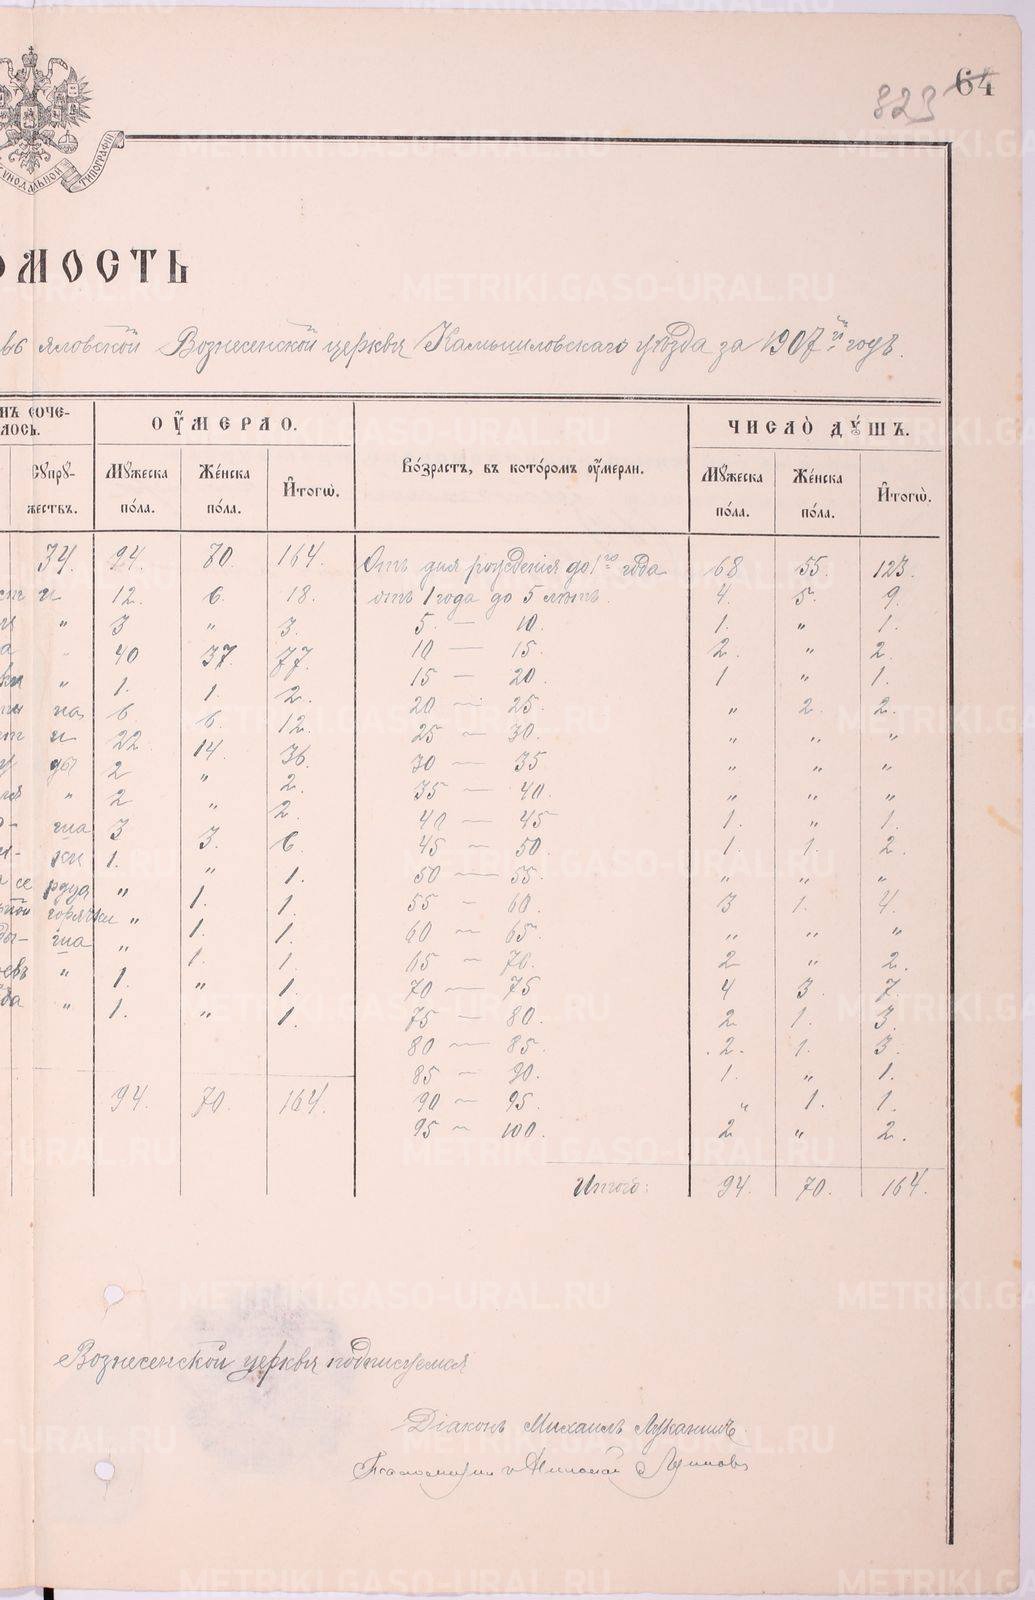 64
823
СѴНОДАЛЬНОЙ ТИПОГРАФІИ
ОМОСТЬ
яловской Вознесенской церкви Камышловскаго уѣзда за 1907й годъ.
СОЧЕ-
ЛОСЬ.
ОУМЕРЛО.
Возрастъ, въ которомъ оумерли.
ЧИСЛО ДУШЪ.
Супру-
жествъ.
Мужеска
пола.
Женска
пола.
Итогѡ.
Мужеска
пола.
Женска
пола.
Итогѡ.
34. 94. 70. 164. Отъ дня рожденія до 1го года 68 55. 123.
и 12. 6. 18. отъ 1 года до 5 лѣтъ. 4. 5. 9.
" 3 " 3. 5. — 10. 1. " 1.
40 37. 77. 10 — 15. 2. " 2.
" 1. 1. 2. 15 — 20. 1 " 1.
на 6 6. 12. 20 — 25. " 2. 2.
и 22. 14. 36. 25 — 30. " " "
ды 2 " 2. 30 — 35 " " "
" 2 " 2. 35 — 40. " " "
гла 3. 3. 6. 40 — 45 1. " 1.
ки 1. " 1. 45 — 50 1. 1. 2.
сердца " 1. 1. 50 — 55. " " "
горячки " 1. 1. 55 — 60. 3 1. 4.
" 1. 1. 60 — 65. " " "
" 1. " 1. 65 — 70. 2 " 2.
" 1. " 1. 70 — 75 4 3. 7
75 — 80. 2. 1. 3.
80 — 85. 2. 1. 3.
85 — 90. 1. " 1.
94. 70. 164. 90 — 95. " 1. 1.
95 — 100. 2 " 2.
Итого: 94. 70. 164.
Вознесенской церкви подписуемся
Діаконъ Михаилъ
METRIKI.GASO-URAL.RU